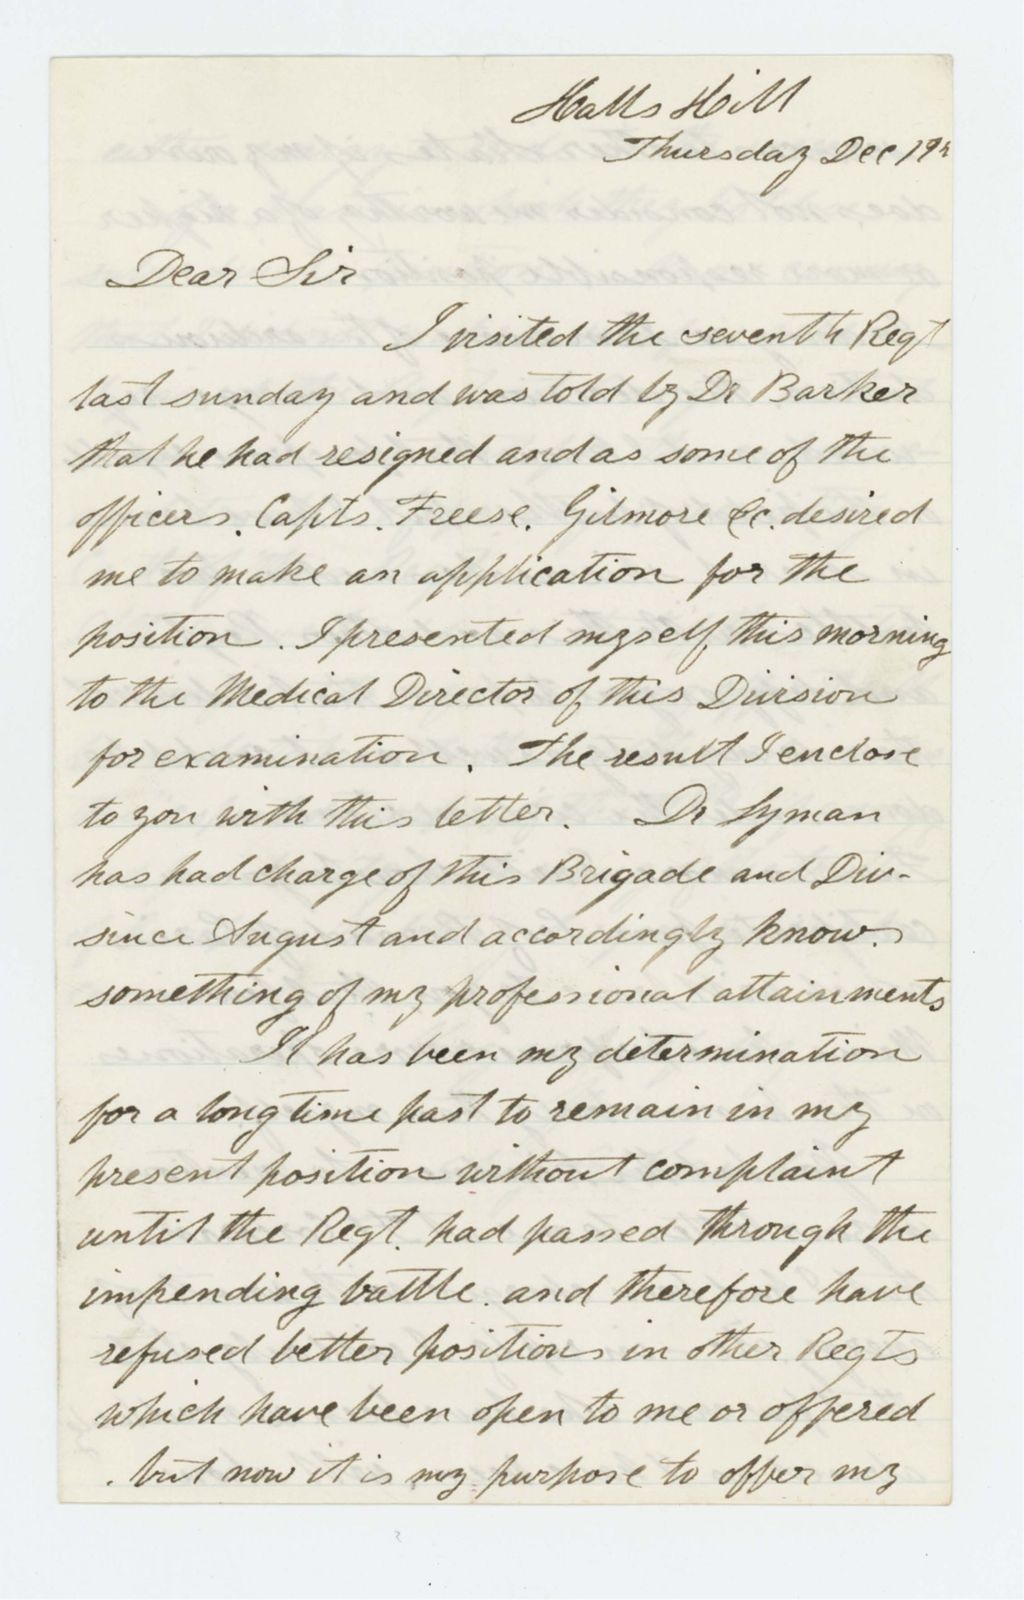 Halls Hill
Thursday Dec 19th
Dear Sir
I visited the seventh Regt
last sunday and was told by Dr Barker
that he had resigned and as some of the
officers. Capts. Freese. Gilmore &c. desired
me to make an application for the
position. I presented myself this morning
to the Medical Director of this Division
for examination. The result I enclose
to you with this letter. Dr Lyman
has had charge of this Brigade and Div-
since August and accordingly knows
something of my professional attainments
It has been my determination
for a long time past to remain in my
present position without complaint
until the Regt. had passed through the
impending battle. and therefore have
refused better positions in other Regts
which have been open to me or offered
. but now it is my purpose to offer my